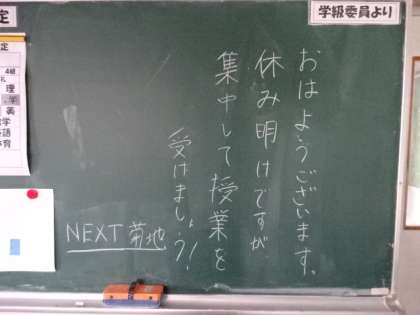 学級委員より
おはようございます。
休み明けですが
集中して授業を
受けましょう!
NEXT 菊地
定
定
4組
理
学
美